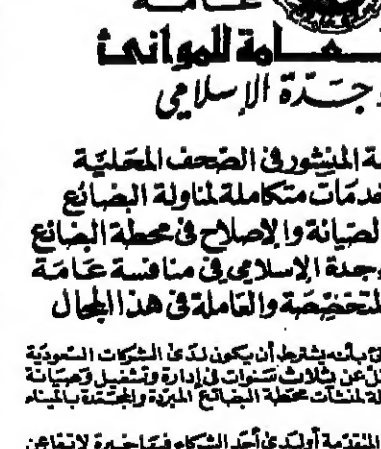 عـامـة
ـعـامة للموانئ
وجـدّة الإسلامي
ـة المنشور في الصحف المحليّة
خدمات متكاملة لمناولة البضائع
لصيانة والإصلاح في محطة البضائع
وجدة الإسلامي في منافسة عـامـة
لمتخصّصة والعاملة في هذا المجال
بأنـه يشترط أن يكون لـدى الشركات السّعوديّة
ـل عن ثلاث سنوات في إدارة وتشغيل وصيانـة
ـة لمنشآت محطة البضائع المبرّدة والمجمّدة بالميناء
المتقدّمة أو لـدى أحد الشركاء فيها خبرة لا تقل عن